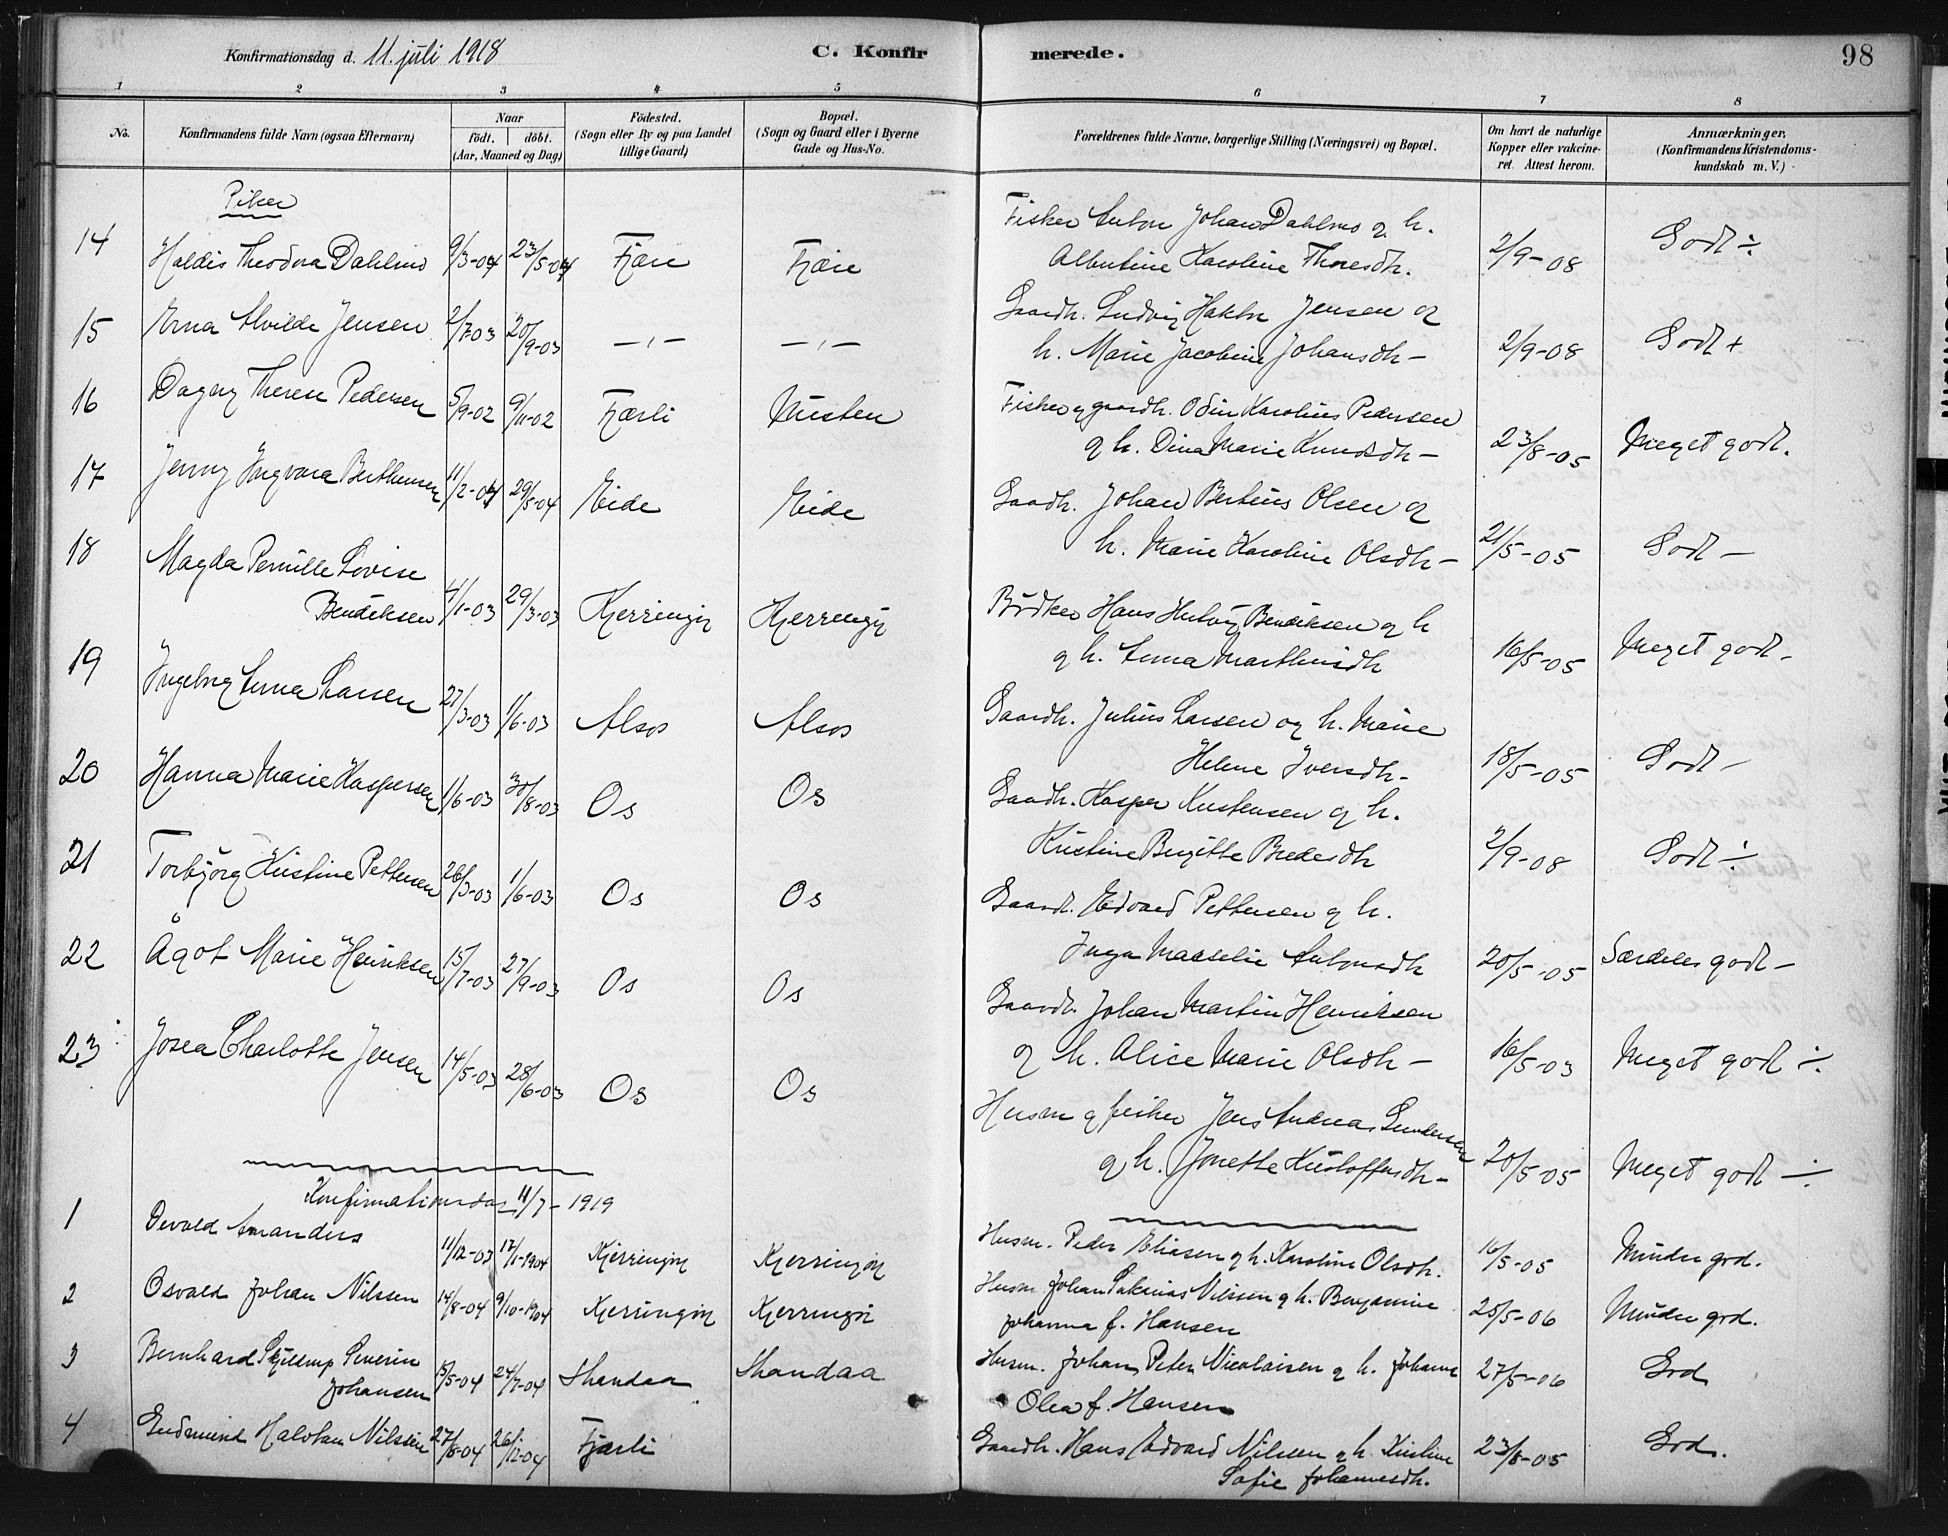 Konfirmationsdag d. 11. juli 1918
C. Konfirmerede.
98
1 2 3 4 5 6 7 8
No.
Konfirmandens fulde Navn (ogsaa Efternavn)
Naar
födt. döbt.
(Aar, Maaned og Dag)
Födested.
(Sogn eller By og paa Landet
tillige Gaard)
Bopæl.
(Sogn og Gaard eller i Byerne
Gade og Hus-No.
Forældrenes fulde Navne, borgerlige Stilling (Næringsvei) og Bopæl.
Om havt de naturlige
Kopper eller vakcine-
ret. Attest herom.
Anmærkninger.
(Konfirmandens Kristendoms-
kundskab m. V.)
Piker
14 Haldis Theodora Dahlmo 9/3-04 23/5-04 Fjære Fjære
Fisker Anton Johan Dahlmo og h.
Albertine Karoline Thoresdh. 2/9-08 Godt ÷
15 Erna Alvilde Jensen 2/7 03 20/9-03 —,— —,—
Gaardh. Ludvig Jensen og
h. Marie Jacobine Johansdh - 2/9-08 Godt +
16 Dagny Therese Pedersen 5/9-02 9/11-02 Fjærli
Fisker og gaardh. Odin Karolius Pedersen
og h. Dina Marie Knudsdh - 23/8-05 Meget godt.
17 Jenny Ingvara Berthinsen 11/2-04 29/5-04 Eide Eide
Gaardh. Johan Bertinus Olsen og
h. Marie Karoline Olsdh - 21/5-05 Godt -
18 Magda Pernille Lovise
Bendiksen 4/1-03 29/3-03 Kjerringøy Kjerringøy
Bødker Hans Bendiksen og h
og h. Anna Marthinsdh 16/5-05 Meget godt -
19 Ingeborg Anna Larsen 27/3-03 1/6-03 Alsos Alsos
Gaardh. Julius Larsen og h. Marie
Helene Iversdh - 18/5-05 Godt -
20 Hanna Marie Kaspersen 1/6-03 30/8-03 Os Os
Gaardh. Kasper Kristensen og h.
Kristine Birgitte Pedersdh 2/9-08 Godt ÷
21 Torbjörg Kristine Pettersen 26/3-03 1/6-03 Os Os
Gaardh. Edvard Pettersen og h.
Inga Marselie Antonsdh 20/5-05 Særdeles godt -
22 Ågot Marie Henriksen 15/7-03 27/9-03 Os Os
Gaardh. Johan Martin Henriksen
og h. Alice Marie Olsdh - 16/5-03 Meget godt ÷
23 Josea Charlotte Jensen 14/5-03 28/6-03 Os Os
Husm og fisker Jens Andreas
og h. Jonette Kristoffersdh - 20/5-05 Meget godt ÷
Konfirmationsdag 11/7 - 1919
1 Osvald Amandus 11/12-03 17/1-1904 Kjerringøy Kjerringøy
Husm. Peder Eliasen og h. Karoline Olsdh. 16/5-05 Mindre god.
2 Osvald Johan Nilssen 14/8-04 9/10-1904 Kjerringøy Kjerringøy
Husm. Johan Sakarias Nilssen og h. Benjamine
Johanna f. Hansen 25/5-06 Mindre god.
3 Bernhard Skjeldrup Severin
Johansen 15/5-04 24/7-04 Strandaa Strandaa
Husm. Johan Peter Nicolaisen og h. Johanna
Olea f. Hansen 27/5-06 God
4 Gudmund Halvdan Nilssen 27/8-04 26/12-04 Fjærli
Gaardh. Hans Edvard Nilssen og h. Kristine
Sofie Johannesdh. 23/8-05 God.